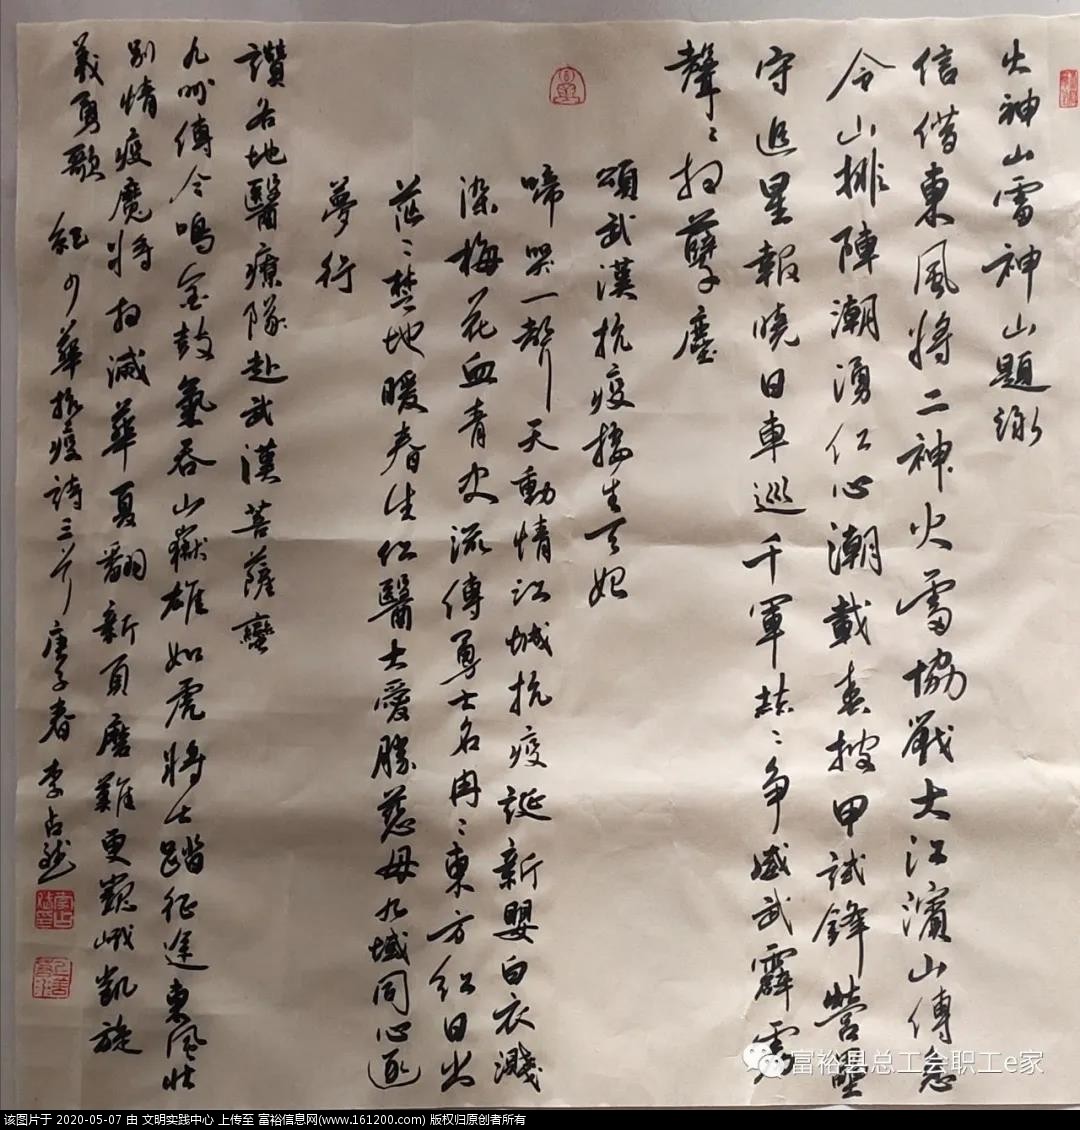 火神山雷神山題詠
信借東風將二神火雷協戰大江濱山傳急
令山排陣潮湧仁心潮載春披甲試鋒營壘
守追星報曉日車巡千軍喆〻爭威武霹靂
聲〻掃孽塵
頌武漢抗疫接生天妃
啼哭一聲天動情江城抗疫誕新嬰白衣濺
染梅花血青史流傳勇士名冉〻東方紅日出
茫〻楚地暖春生仁醫大愛勝慈母九域同心逐
夢行
讚各地醫療隊赴武漢菩薩蠻
九州傳令鳴金鼓氣吞山嶽雄如虎將士踏征途東風壯
別情疫魔將掃滅華夏翻新頁磨難更巍峨凱旋
義勇歌 紀少華抗疫詩三首 庚子春 李占斌
富裕县总工会职工e家
该图片于 2020-05-07 由 文明实践中心 上传至 富裕信息网(www.161200.com) 版权归原创者所有